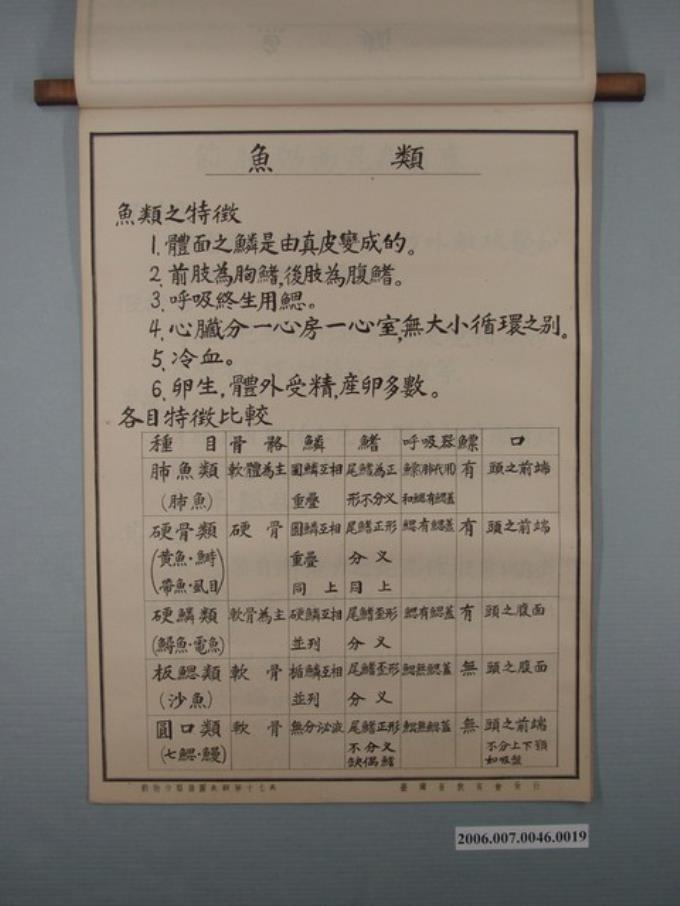 魚類
魚類之特徵
1. 體面之鱗是由真皮變成的。
2. 前肢為胸鰭,後肢為腹鰭。
3. 呼吸終生用鰓。
4. 心臟分一心房一心室,無大小循環之别。
5. 冷血。
6. 卵生,體外受精,產卵多數。
各目特徵比較
種目 骨骼 鱗 鰭 呼吸器 鰾 口
肺魚類 軟體為主 圓鱗互相 尾鰭為正 鰾(肺代用) 有 頭之前端
(肺魚) 重疊 形不分义 和鰓有鰓蓋
硬骨類 硬骨 圓鱗互相 尾鰭正形 鰓有鰓蓋 有 頭之前端
(黄魚·鰣 重疊 分义
帶魚·虱目) 同上 同上
硬鱗類 軟骨為主 硬鱗互相 尾鰭歪形 鰓有鰓蓋 有 頭之腹面
(鱘魚·電魚) 並列 分义
板鰓類 軟骨 楯鱗互相 尾鰭歪形 鰓無鰓蓋 無 頭之腹面
(沙魚) 並列 分义
圓口類 軟骨 無分泌液 尾鰭正形 鰓無鰓蓋 無 頭之前端
(七鰓·鰻) 不分义 不分上下顎
缺偶鰭 如吸盤
臺灣省教育會發行
2006.007.0046.0019